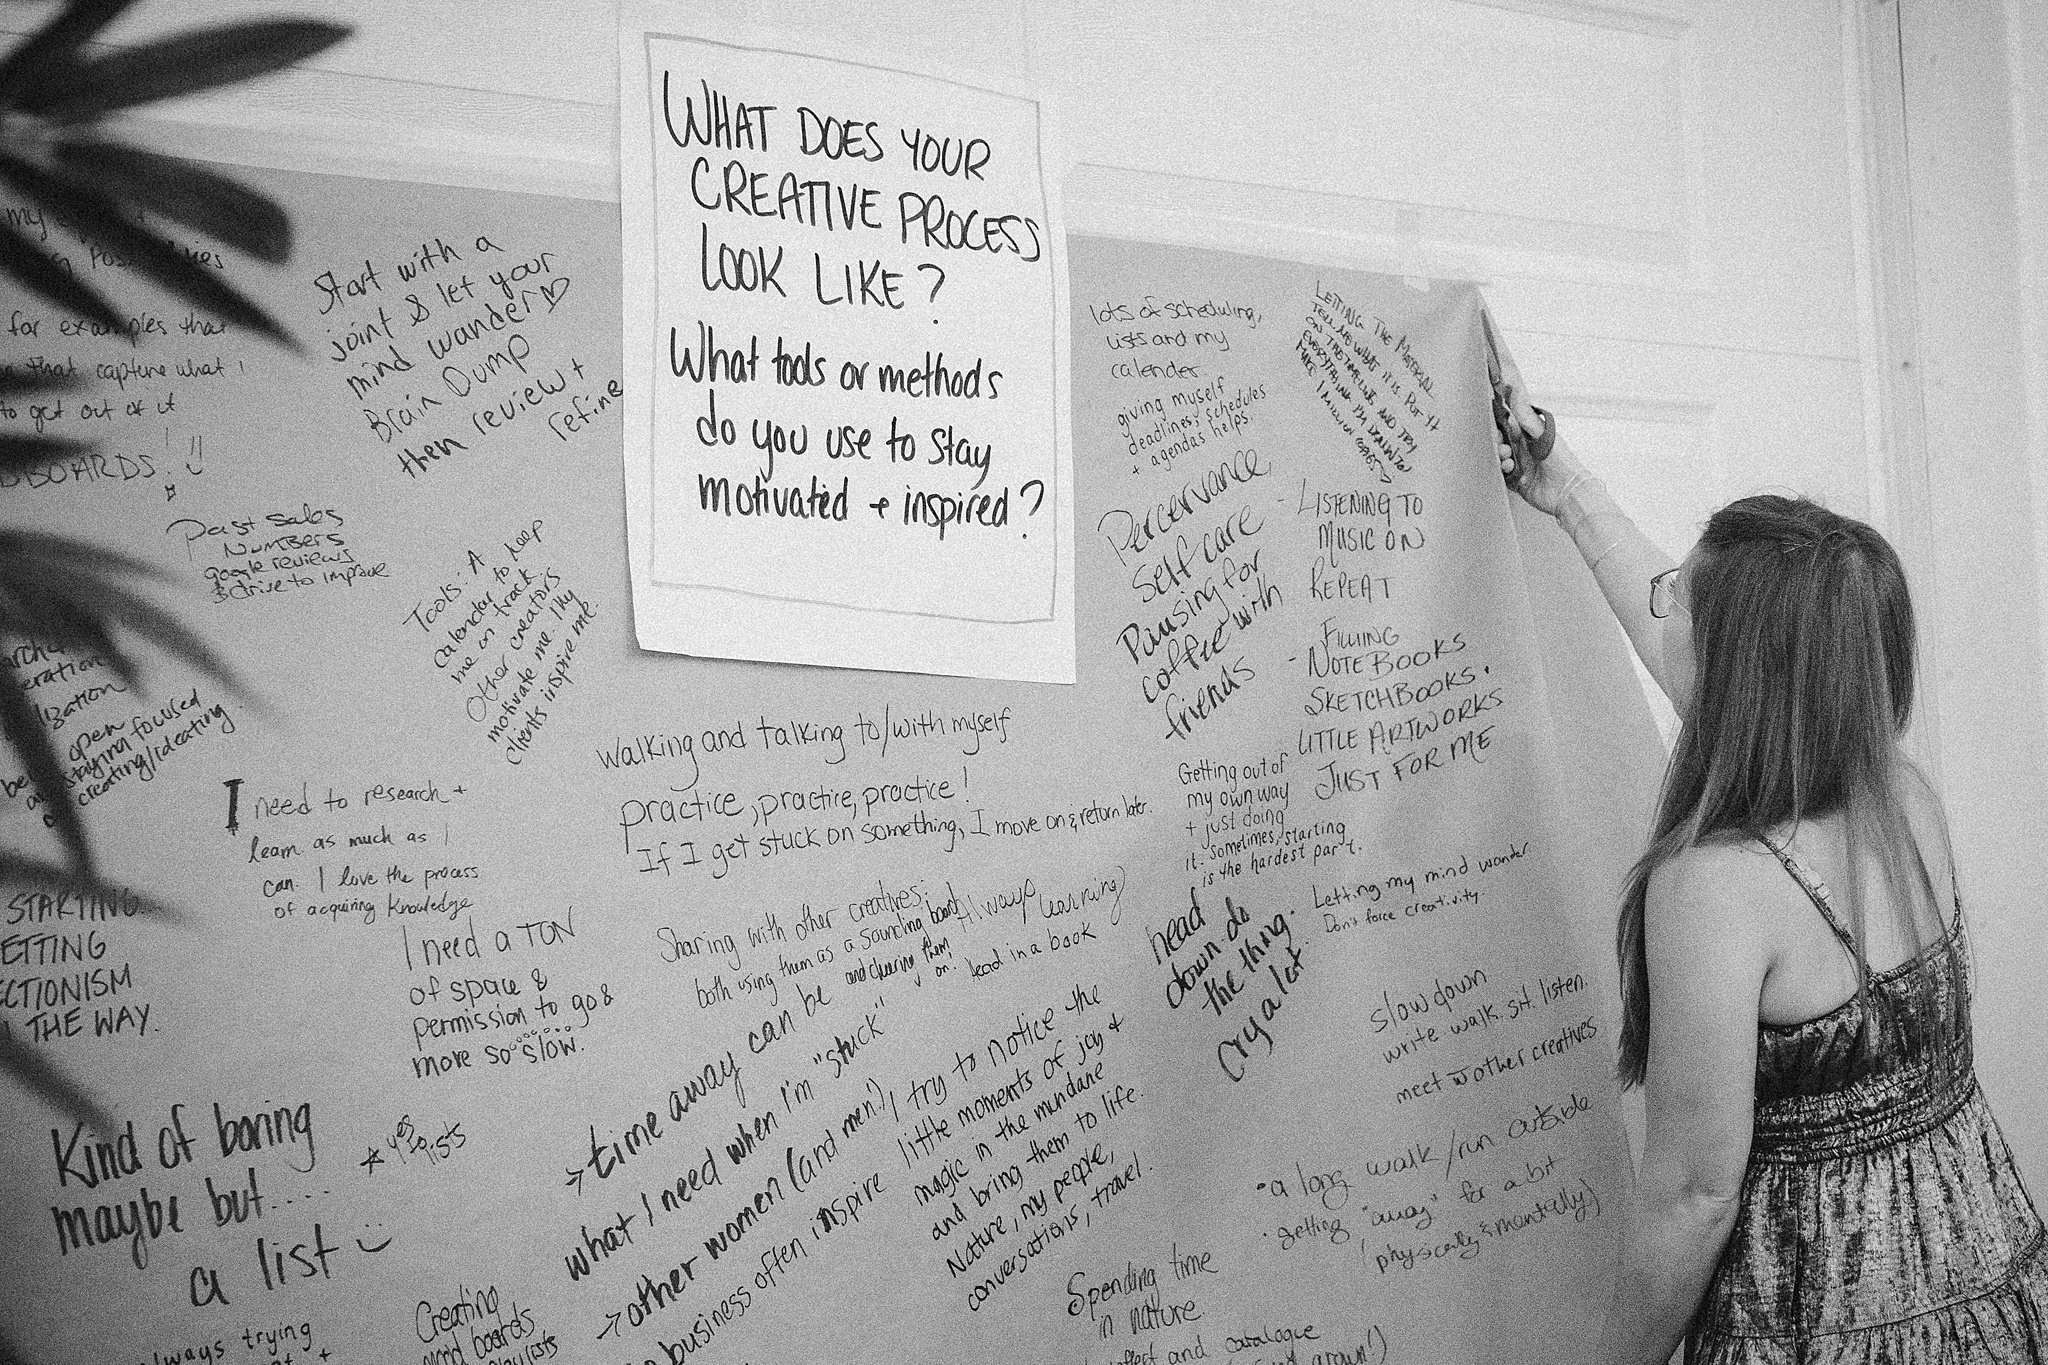 WHAT DOES YOUR
CREATIVE PROCESS
LOOK LIKE?
What tools or methods
do you use to stay
motivated + inspired?
my
for examples that
that capture what I
to get out of it
BOARDS. !
Start with a
joint & let your
mind wander ♡
Brain Dump
then review +
refine
Past Sales
Numbers
google reviews
Strive to improve
Tools: A
calendar to keep
me on track
Other creators
motivate me. My
clients inspire me.
open
staying focused
creating/ideating.
I need to research +
learn as much as I
can. I love the process
of acquiring knowledge
STARTING
THE WAY.
I need a TON
of space &
permission to go &
more so slow.
Kind of boring
maybe but....
a list
★ yes
to
lists
always trying
Creating
boards
walking and talking to/with myself
practice, practice, practice!
If I get stuck on something, I move on & return later.
Sharing with other creatives:
both using them as a sounding board
and cheering them
on!
Always learning)
head in a book
→ time away can be
what I need when I'm "stuck"
→ other women (and men!)
business often inspire
I try to notice the
little moments of joy &
magic in the mundane
and bring them to life.
Nature, my people,
conversations, travel.
lots of scheduling,
lists and my
calender.
giving myself
deadlines, schedules
+ agendas helps.
Percervance,
Self care
Pausing for
coffee with
friends
LETTING THE MATERIAL
TELL ME WHAT IT IS. PUT IT
- LISTENING TO
MUSIC ON
REPEAT
- FILLING
NOTEBOOKS
SKETCHBOOKS.
LITTLE ARTWORKS
JUST FOR ME
Getting out of
my own way
+ just doing
it. Sometimes, starting
is the hardest part.
head
down. do
the thing.
Cry a lot.
Letting my mind wander
Don't force creativity.
slow down
write. walk. sit. listen.
meet w other creatives
• a long walk/run outside
• getting "away" for a bit
(physically & mentally)
Spending time
in nature.
and catalogue